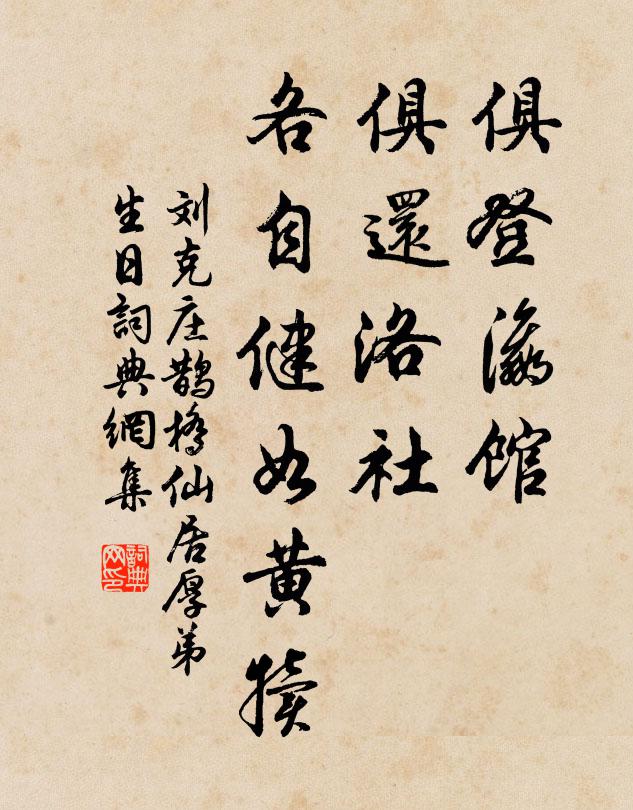 俱登瀛馆
俱還洛社
各自健如黄犊
刘克庄鹊橋仙居厚弟
生日詞典網集
詞典网印